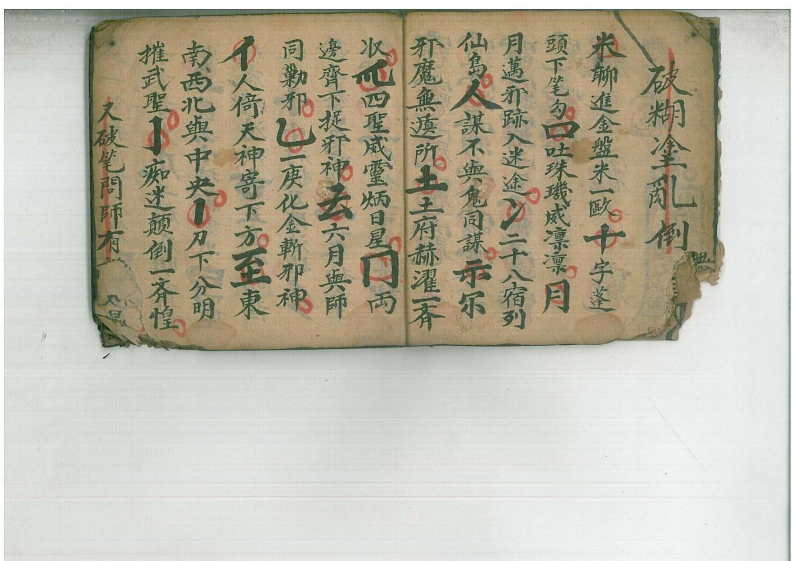 破糊塗乱倒
米聊進金盤米一歐十字蓬
頭下笔勾口吐珠璣威凛凛月
月萬邪跡入迷途冫二十八宿列
仙島人謀不與鬼同謀示尔
邪魔無蘊所土土府赫濯一斉
収爪四聖威灵炳日星冂両
邊齊下捉邪神去六月與師
同勦邪乚一庚化金斬邪神
亻人倚天神寄下方至東
南西北與中央刂刀下分明
摧武聖刂痴迷颠倒一斉惶
又破笔問師有